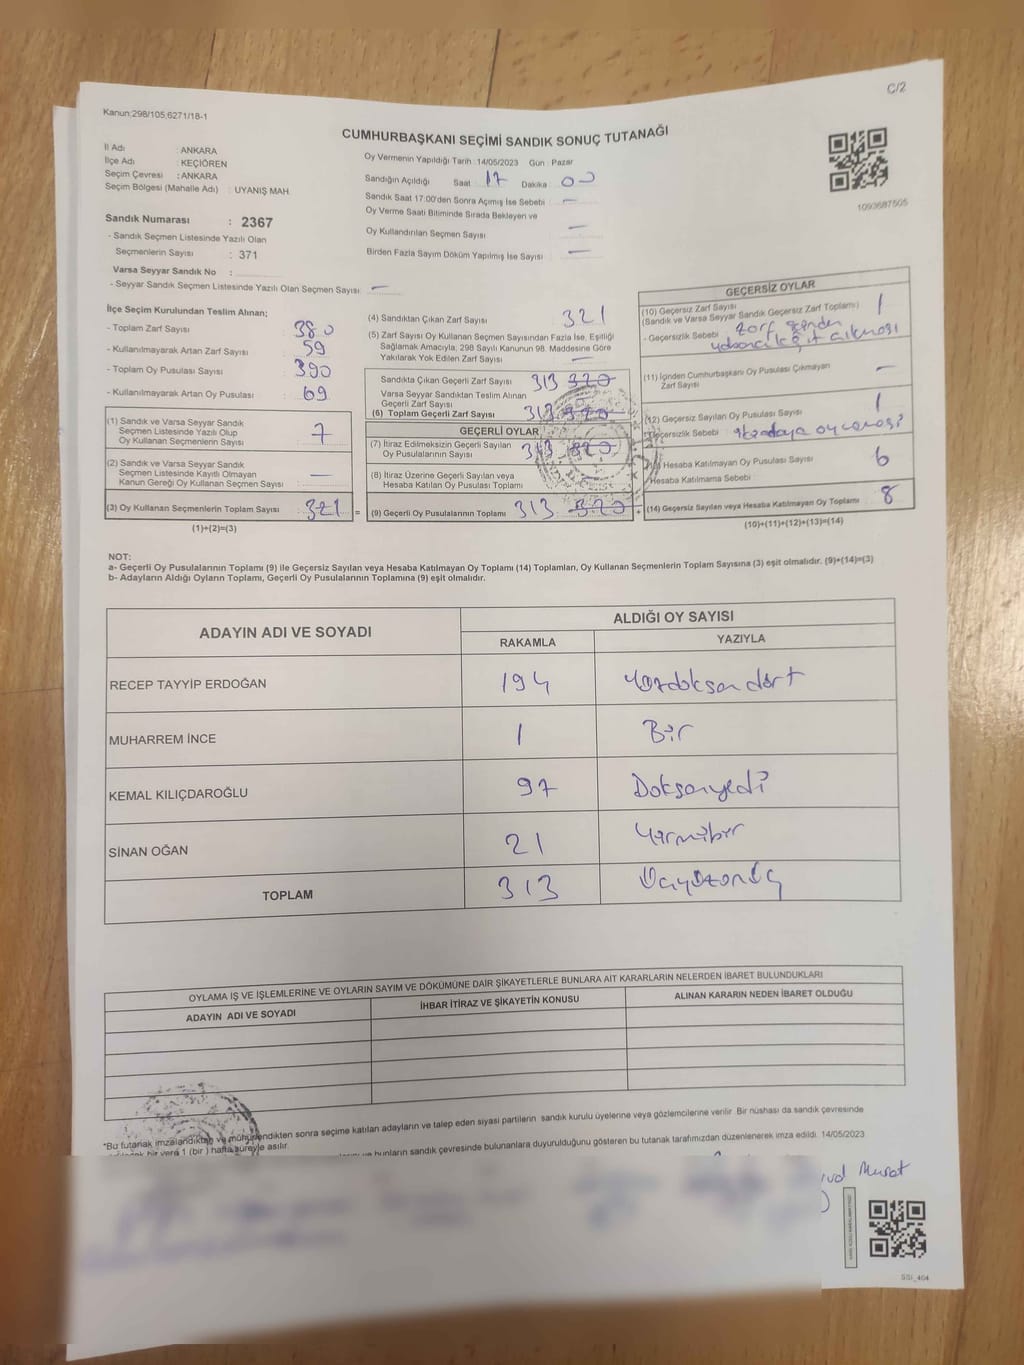 C/2
Kanun:298/105,6271/18-1
CUMHURBAŞKANI SEÇİMİ SANDIK SONUÇ TUTANAĞI
İl Adı : ANKARA
İlçe Adı : KEÇİÖREN
Seçim Çevresi : ANKARA
Seçim Bölgesi (Mahalle Adı) : UYANIŞ MAH.
Sandık Numarası : 2367
- Sandık Seçmen Listesinde Yazılı Olan
Seçmenlerin Sayısı : 371
Varsa Seyyar Sandık No :
- Seyyar Sandık Seçmen Listesinde Yazılı Olan Seçmen Sayısı: —
Oy Vermenin Yapıldığı Tarih : 14/05/2023 Gün : Pazar
Sandığın Açıldığı Saat 17 Dakika 00
Sandık Saat 17:00'den Sonra Açımış İse Sebebi —
Oy Verme Saati Bitiminde Sırada Bekleyen ve
Oy Kullandırılan Seçmen Sayısı —
Birden Fazla Sayım Döküm Yapılmış İse Sayısı —
1093687505
İlçe Seçim Kurulundan Teslim Alınan;
- Toplam Zarf Sayısı : 380
- Kullanılmayarak Artan Zarf Sayısı : 59
- Toplam Oy Pusulası Sayısı : 390
- Kullanılmayarak Artan Oy Pusulası : 69
(1) Sandık ve Varsa Seyyar Sandık
Seçmen Listesinde Yazılı Olup
Oy Kullanan Seçmenlerin Sayısı : 7
(2) Sandık ve Varsa Seyyar Sandık
Seçmen Listesinde Kayıtlı Olmayan
Kanun Gereği Oy Kullanan Seçmen Sayısı : —
(3) Oy Kullanan Seçmenlerin Toplam Sayısı : 321 =
(1)+(2)=(3)
(4) Sandıktan Çıkan Zarf Sayısı 321
(5) Zarf Sayısı Oy Kullanan Seçmen Sayısından Fazla İse, Eşitliği
Sağlamak Amacıyla, 298 Sayılı Kanunun 98. Maddesine Göre
Yakılarak Yok Edilen Zarf Sayısı —
Sandıkta Çıkan Geçerli Zarf Sayısı 313 320
Varsa Seyyar Sandıktan Teslim Alınan
Geçerli Zarf Sayısı
(6) Toplam Geçerli Zarf Sayısı 313 320
GEÇERLİ OYLAR
(7) İtiraz Edilmeksizin Geçerli Sayılan
Oy Pusulalarının Sayısı 313 320
(8) İtiraz Üzerine Geçerli Sayılan veya
Hesaba Katılan Oy Pusulası Toplamı
(9) Geçerli Oy Pusulalarının Toplamı 313 320 +
GEÇERSİZ OYLAR
(10) Geçersiz Zarf Sayısı
(Sandık ve Varsa Seyyar Sandık Geçersiz Zarf Toplamı) 1
- Geçersizlik Sebebi zarf içinden
yabancı kağıt çıkması
(11) İçinden Cumhurbaşkanı Oy Pusulası Çıkmayan
Zarf Sayısı —
(12) Geçersiz Sayılan Oy Pusulası Sayısı 1
Geçersizlik Sebebi
Hesaba Katılmayan Oy Pusulası Sayısı 6
Hesaba Katılmama Sebebi
(14) Geçersiz Sayılan veya Hesaba Katılmayan Oy Toplamı 8
(10)+(11)+(12)+(13)=(14)
NOT:
a- Geçerli Oy Pusulalarının Toplamı (9) ile Geçersiz Sayılan veya Hesaba Katılmayan Oy Toplamı (14) Toplamları, Oy Kullanan Seçmenlerin Toplam Sayısına (3) eşit olmalıdır. (9)+(14)=(3)
b- Adayların Aldığı Oyların Toplamı, Geçerli Oy Pusulalarının Toplamına (9) eşit olmalıdır.
ADAYIN ADI VE SOYADI ALDIĞI OY SAYISI
RAKAMLA YAZIYLA
RECEP TAYYİP ERDOĞAN 194 Yüzdoksandört
MUHARREM İNCE 1 Bir
KEMAL KILIÇDAROĞLU 97 Doksanyedi
SİNAN OĞAN 21 Yirmibir
TOPLAM 313 Üçyüzonüç
OYLAMA İŞ VE İŞLEMLERİNE VE OYLARIN SAYIM VE DÖKÜMÜNE DAİR ŞİKAYETLERLE BUNLARA AİT KARARLARIN NELERDEN İBARET BULUNDUKLARI
ADAYIN ADI VE SOYADI İHBAR İTİRAZ VE ŞİKAYETİN KONUSU ALINAN KARARIN NEDEN İBARET OLDUĞU
*Bu tutanak imzalandıktan ve mühürlendikten sonra seçime katılan adayların ve talep eden siyasi partilerin sandık kurulu üyelerine veya gözlemcilerine verilir. Bir nüshası da sandık çevresinde
bir yere 1 (bir) hafta süreyle asılır.
bunların sandık çevresinde bulunanlara duyurulduğunu gösteren bu tutanak tarafımızdan düzenlenerek imza edildi. 14/05/2023
Murat
SSI_404